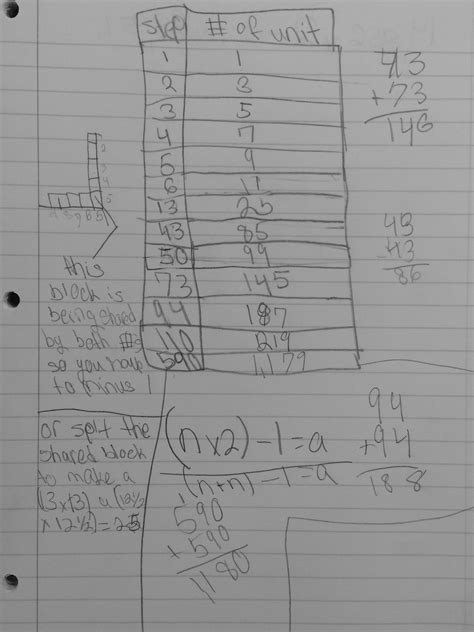 step # of unit
1 1
2 3
3 5
4 7
5 9
6 11
13 25
43 85
50 99
73 145
94 187
110 219
590 1179
43
+73
146
43
43
86
this
block is
being shared
by both #s
so you have
to minus 1
or split the
shared block
to make a
(12½
x12½)=25
(nx2)-1=a
(n+n)-1=a
590
+590
1180
94
+94
188